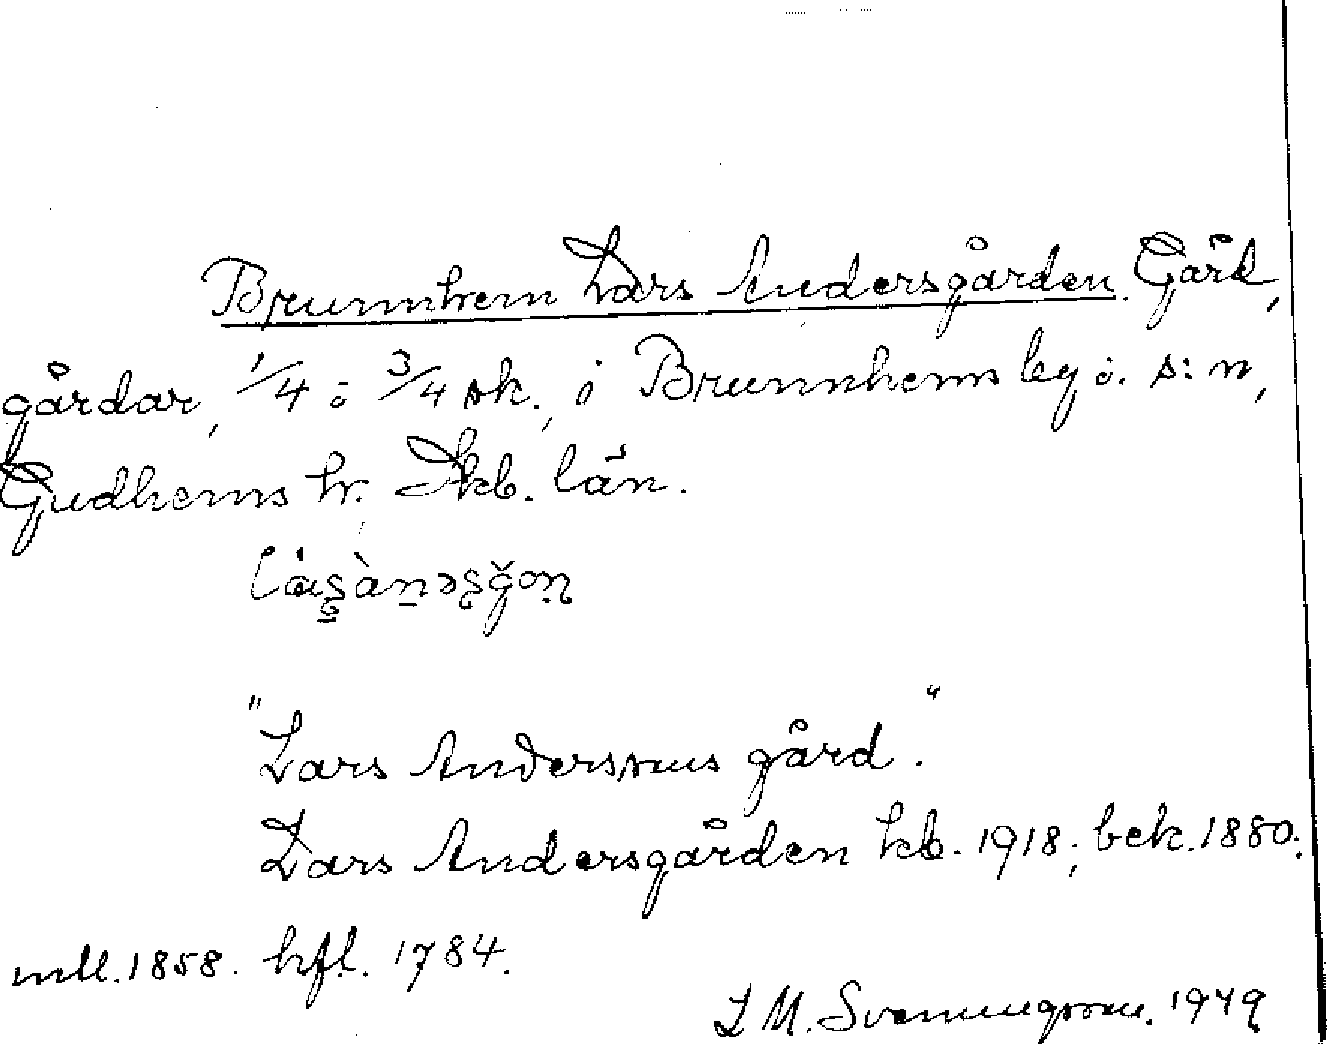 Brunnhem Lars Andersgården. Gård,
gårdar, 1/4 o 3/4 sk., i Brunnhems by o. s:n,
Gudhems hr. Skb. län.
"Lars Anderssons gård."
Lars Andersgården kb. 1918; bek. 1880;
mtl. 1858. hfl. 1784.
L M. Svenungsson. 1949